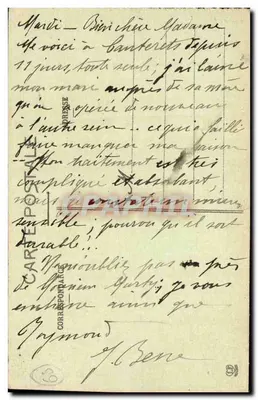 Mardi - Bien chère Madame
Me voici à Cauterets depuis
11 jours, toute seule; j'ai laissé
mon mari auprès de sa mère
qu'on opéré de nouveau
à l'autre sein - ce qui a failli
faire manquer ma saison
Mon traitement est très
compliqué et absorbant
mais constate
sensible, pourvu qu'il soit
durable!..
N'oubliez pas près
de je vous
embrasse ainsi que
Raymond
J. Besse
CARTE POSTALE
ADRESSE
CORRESPONDANCE